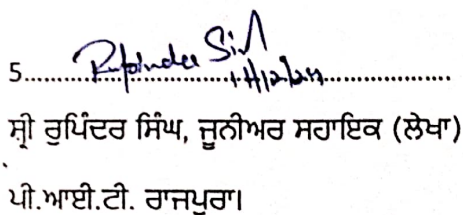 5.......Rupinder Singh.......
ਸ਼੍ਰੀ ਰੁਪਿੰਦਰ ਸਿੰਘ, ਜੂਨੀਅਰ ਸਹਾਇਕ (ਲੇਖਾ)
ਪੀ.ਆਈ.ਟੀ. ਰਾਜਪੁਰਾ।